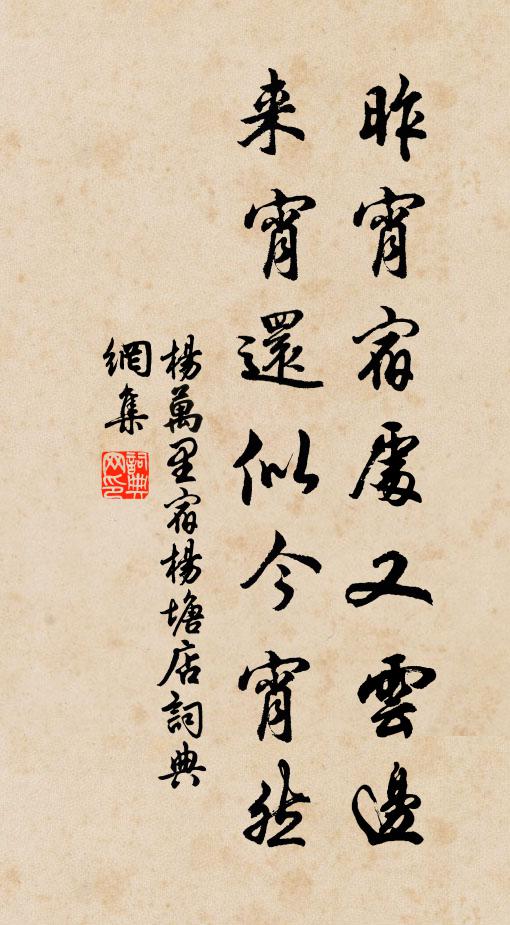 昨宵宿處又雲邊
来宵還似今宵然
楊萬里宿楊塘店詞典
網集
詞典網印